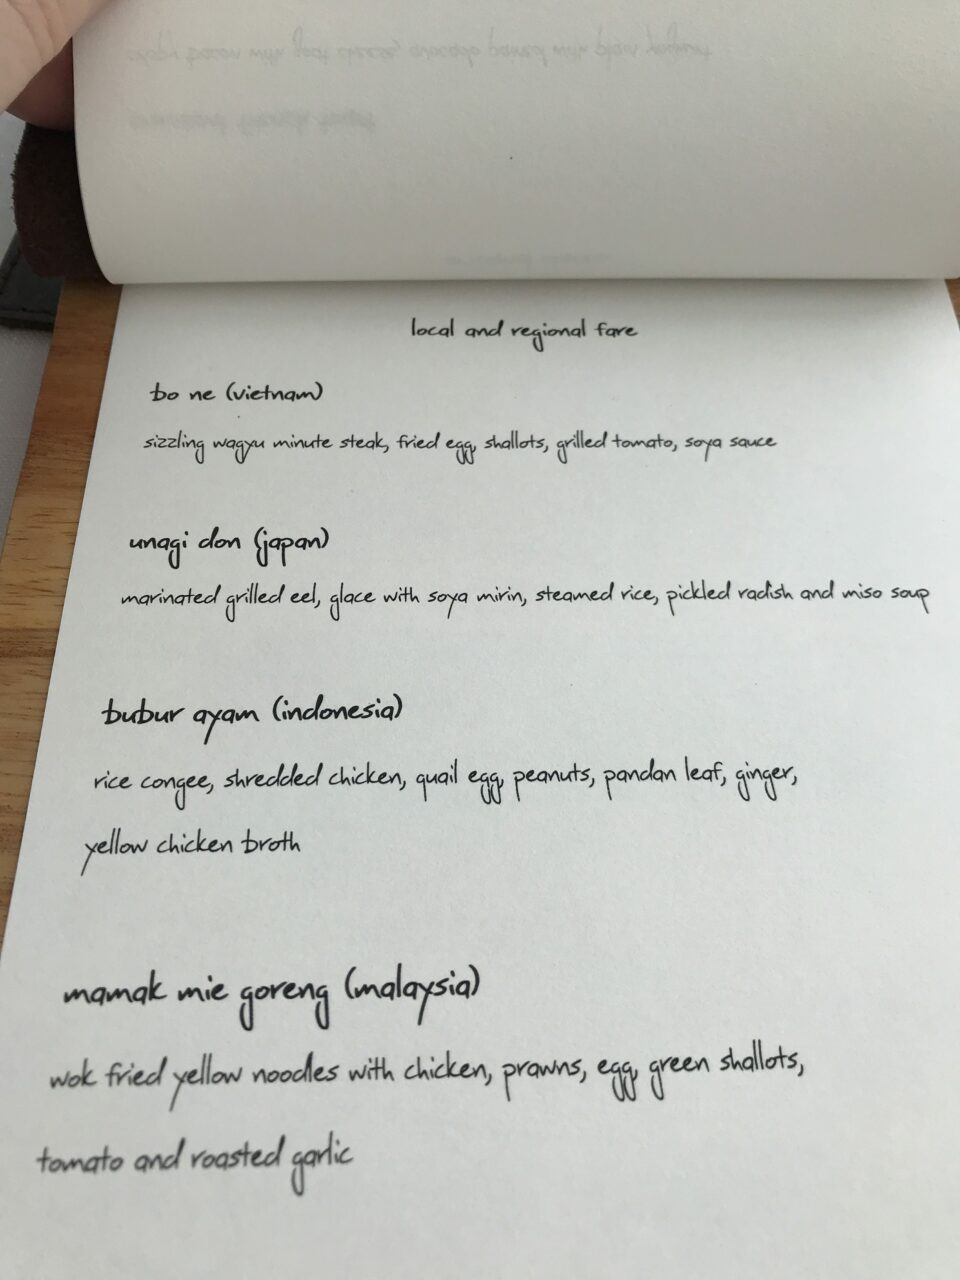 local and regional fare
bo ne (vietnam)
sizzling wagyu minute steak, fried egg, shallots, grilled tomato, soya sauce
unagi don (japan)
marinated grilled eel, glace with soya mirin, steamed rice, pickled radish and miso soup
bubur ayam (indonesia)
rice congee, shredded chicken, quail egg, peanuts, pandan leaf, ginger,
yellow chicken broth
mamak mie goreng (malaysia)
wok fried yellow noodles with chicken, prawns, egg, green shallots,
tomato and roasted garlic